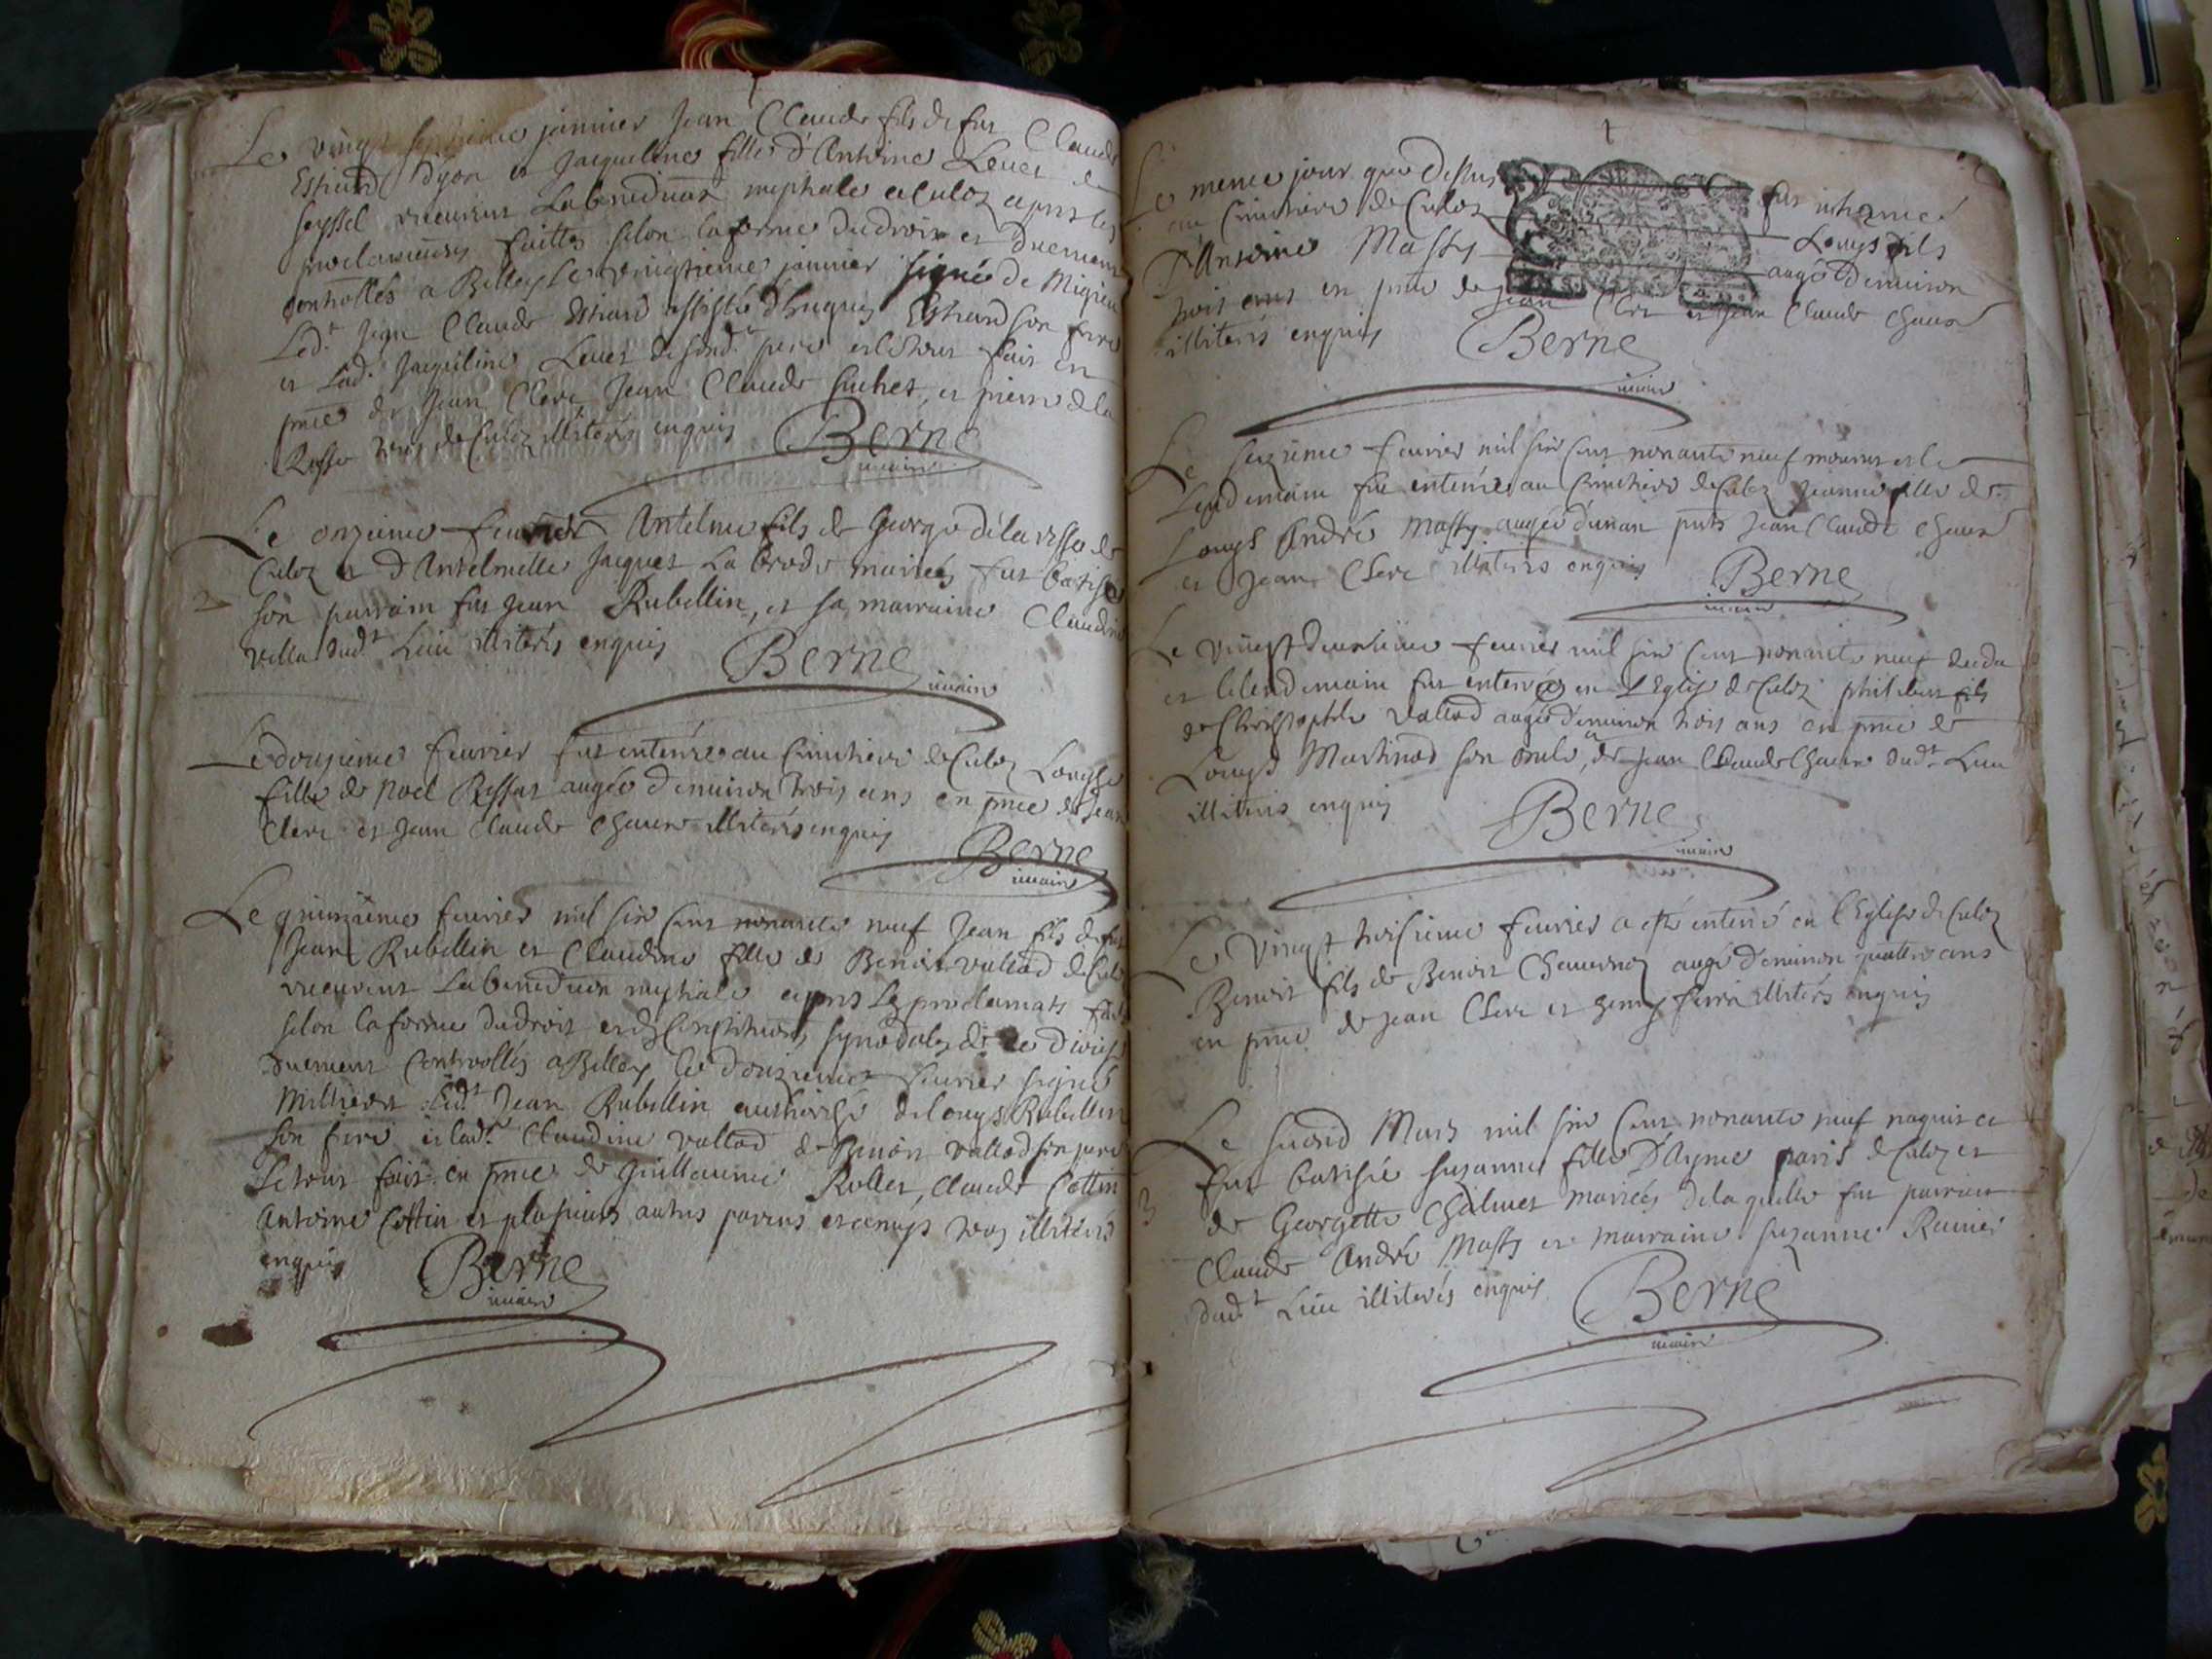 Le vingt septieme janvier Jean Claude fils de fut Claude
Estiard dyon et Jacqueline fille d'Antoine Levet de
Seyssel receurent La benediction nuptiale a Culoz apres les
proclamations faittes selon la forme du droit et duement
controllés a Belley Le vingtieme janvier signé de Migieu
Led.t Jean Claude Estiard assisté d'hugues Estiard son frere
et Lad.t Jaqueline Levet de sond.t pere et le tout fait en
pnce de Jean Clerc Jean Claude Suchet, et pierre de la
Rosse tous de Culoz illiterés enquis Berne
curé
Le onzieme fevrier Antelme fils de George de la rosse de
Culoz et d'Antelmette Jaquet La brode mariés fut batisé
son parrain fut Jean Rubellin, et sa marraine Claudine
vella dud.t Lieu illiterés enquis Berne
2
Le douzieme fevrier fut enterrée au Cimetiere de Culoz Louyse
fille de Noel Rossat augée d'environ trois ans en pnce de Jean
Clerc et Jean Claude Chavan illiterés enquis
Berne
Le quinzieme fevrier mil six cent nonante neuf Jean fils de fut
Jean Rubellin et Claudine fille de Benoit vallod de Culoz
receurent La benediction nuptiale apres Les proclamats faits
selon la forme du droit et des Constitutions synodales de ce diocese
duement Controollés a Belley le douzieme fevrier signé
Millieret Led.t Jean Rubellin authorisé de louys Rubellin
son frere et lad.t Claudine vallod de Benoit vallod son pere
Le tout fait en pnce de Guillaume Rollet, Claude Cottin
Antoine Cottin et plusieurs autres parens et amys tous illiterés
enquis Berne
Le meme jour que dessus fut inhumé
au Cimetiere de Culoz Louys fils
D'Antoine Massy augé d'environ
trois ans en pnce de Jean Clerc et Jean Claude Chavan
illiterés enquis Berne
Le seizieme fevrier mil six cent nonante neuf mourut et le
Lendemain fut enterrée au Cimetiere de Culoz Jeanne fille de
Louys André Massy augée d'un an pnts Jean Claude Chavan
et Jean Clerc illiterés enquis Berne
Le vingt deuxieme fevrier mil six cent nonante neuf deceda
et le lendemain fut enterré en L'Eglise de Culoz philibert fils
de Christophle vallod augé d'environ trois ans en pnce de
Louys Martinod son oncle, et de Jean Claude Chavan dud.t Lieu
illiterés enquis Berne
Le vingt troisieme fevrier a esté enterré en l'Eglise de Culoz
Benoit fils de Benoit augé d'environ quattre ans
en pnce de Jean Clerc et illiterés enquis
Le second Mars mil six cent nonante neuf naquit et
fut batisée Suzanne fille D'Ayme paris de Culoz et
de Georgette Chalmet mariés de laquelle fut parrain
3
Claude André Massy et marraine Suzanne Ravier
dud.t Lieu illiterés enquis Berne